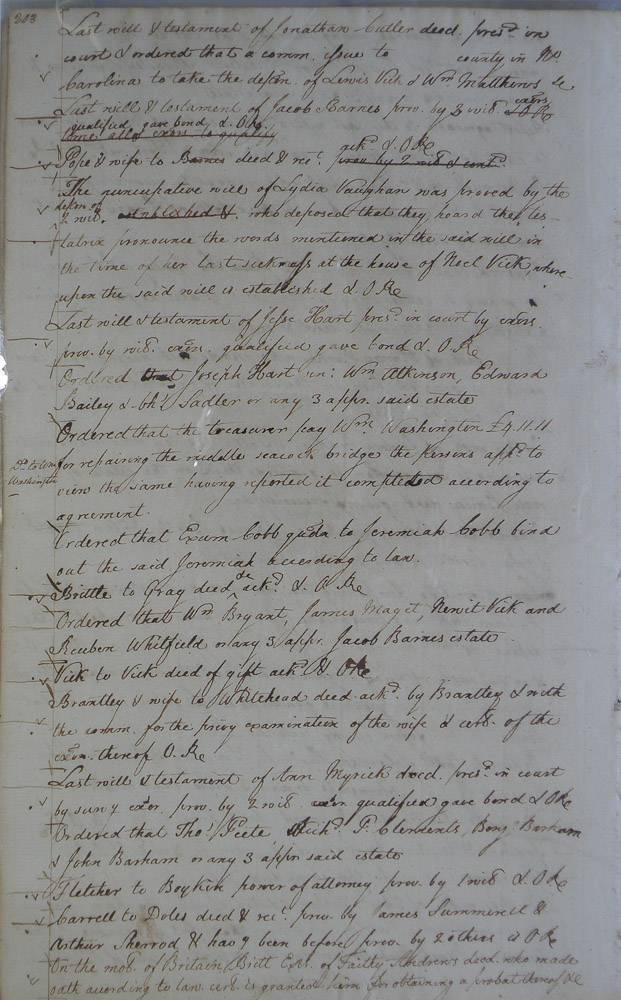 203
Last will & testament of Jonathan Cutler decd. pres.d in
court & ordered that a comm. issue to county in No
Carolina to take the depn. of Lewis Vick & Wm Matthews &c
Last will & testament of Jacob Barnes prov. by 3 wits. exors
& O Re
qualified, gave bond & O Re.
time allo exors to qualify
ack.d & O Re
Pope & wife to Barnes deed & rect. prov by 2 wits & cont.
The nuncupative will of Lydia Vaughan was proved by the
depsn of
2 wits. established & who deposed that they heard the tes-
tatrix pronounce the words mentioned in the said will in
the time of her last sickness at the house of Noel Vick, where-
upon the said will is established & O Re
Last will & testament of Jesse Hart pres.d in court by exors.
prov. by wits. exors. qualified gave bond & O Re
Ordered that Joseph Hart Wm. Atkinson, Edward
Bailey & Sadler or any 3 appr. said estate
Ordered that the treasurer pay Wm. Washington £4.11.11
Do. to Wm
Washington
for repairing the middle seacock bridge the persons app.d to
view the same having reported it completed according to
agreement.
Ordered that Exum Cobb gudn. to Jeremiah Cobb bind
out the said Jeremiah according to law.
Brittle to Gray deed ack.d & O Re
Ordered that Wm Bryant, James Maget, Newit Vick and
Reuben Whitfield or any 3 appr. Jacob Barnes estate
Vick to Vick deed of gift ack.d & O Re
Brantley & wife to Whitehead deed ack.d by Brantley & with
the comm. for the privy examination of the wife & certe. of the
exon. thereof O. Re
Last will & testament of Ann Myrick decd. pres.d in court
by exor. prov. by 2 wits exor qualified gave bond & O Re
Ordered that Thos. Peete, P. Clements Benj Barham
& John Barham or any 3 appr said estate
Fletcher to Boykin power of attorney prov. by 1 wits & O Re
Carrell to Doles deed & rect. prov. by James Summerell &
Arthur Sherrod & hav.g been before prov. by 2 others is O Re
On the mot. of Britain Britt Exr. of Faithy Andrews decd. who made
oath according to law cert. is granted him for obtaining a probat thereof &c